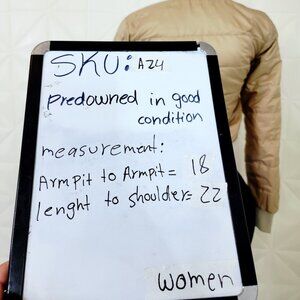 SKU: A24
predowned in good
condition
measurement:
Armpit to Armpit = 18
lenght to shoulder= 22
women